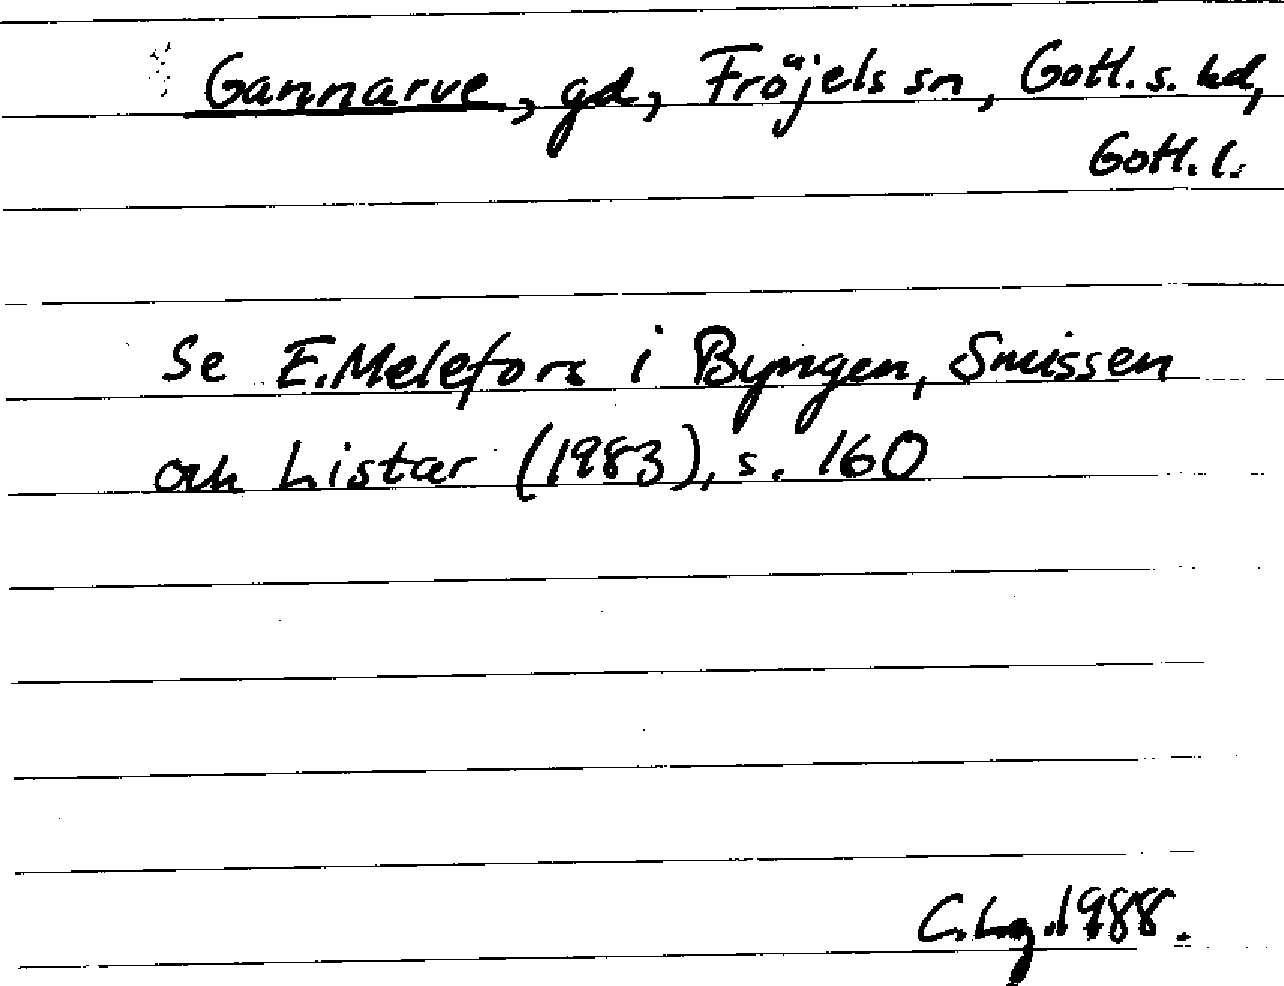 Gannarve, gd, Fröjels sn, Gotl. s. hd,
Gotl. l.
Se E. Melefors i Byngen, Smissen
och Listar (1983), s. 160
C. Lg. 1988.